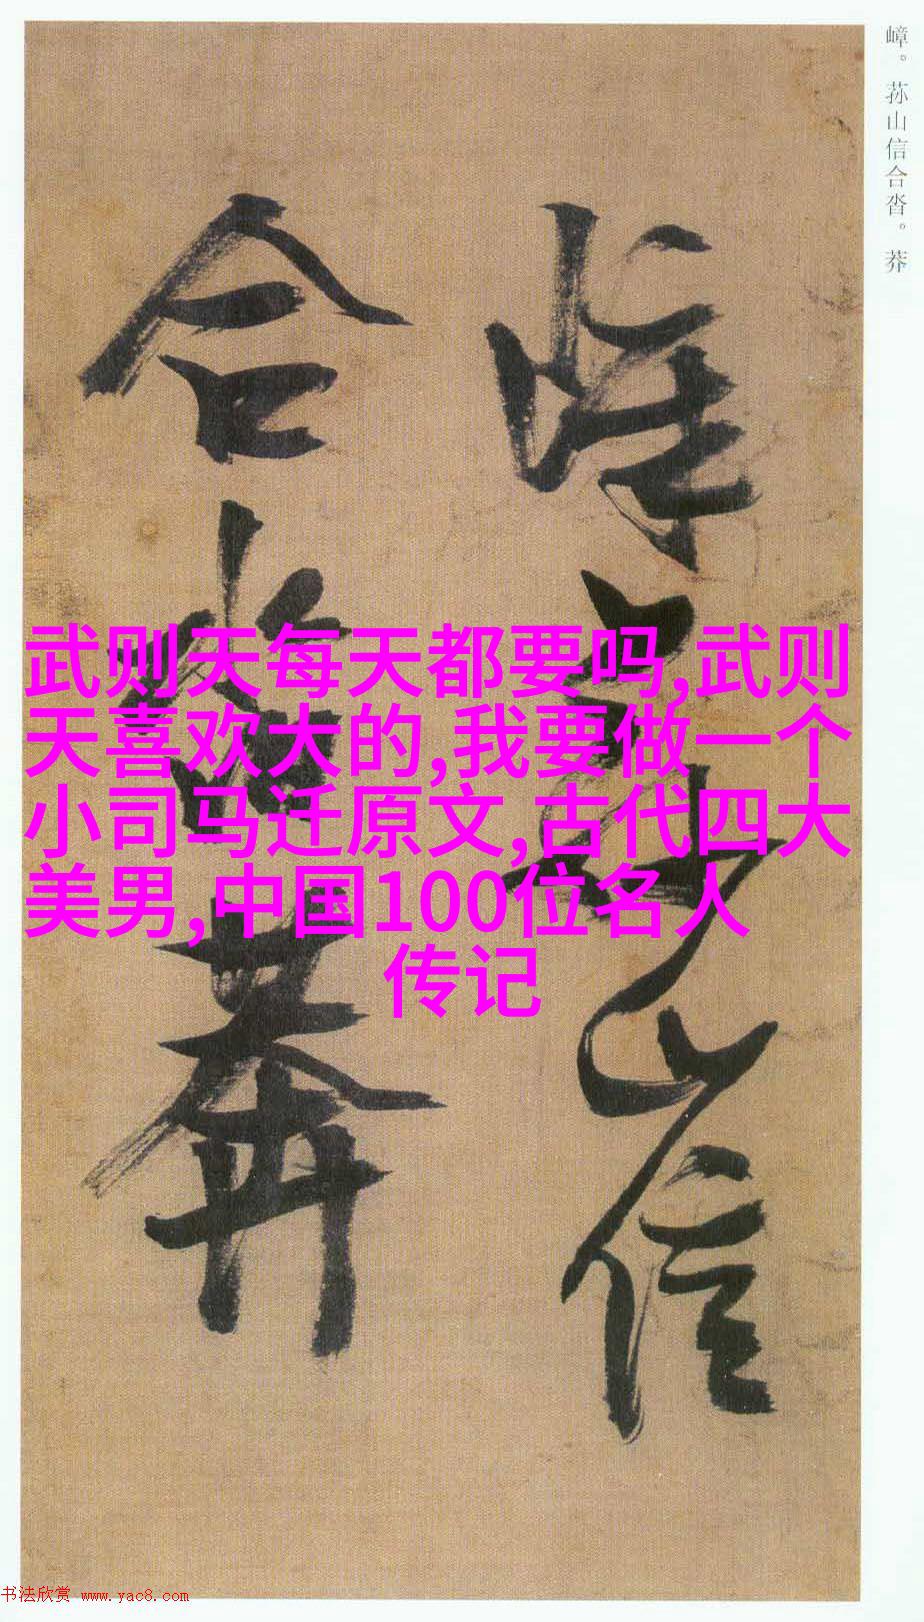 嶂。荪山信合沓。莽
嶂荪山信
合沓莽
武则天每天都要吗,武则
天喜欢大的,我要做一个
小司马迁原文,古代四大
美男,中国100位名人
传记
书法欣赏 www.yac8.com